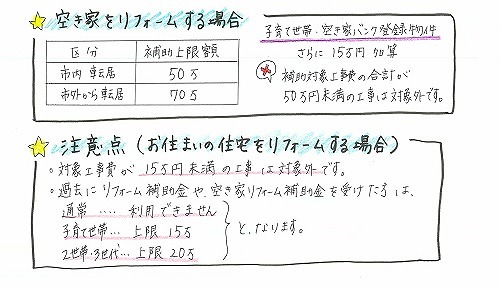 空き家をリフォームする場合
区分 補助上限額
市内転居 50万
市外から転居 70万
子育て世帯・空き家バンク登録物件
さらに 15万円 加算
補助対象工事費の合計が
50万円未満の工事は対象外です。
注意点(お住まいの住宅をリフォームする場合)
・対象工事費が 15万円未満の工事は対象外です。
・過去にリフォーム補助金や、空き家リフォーム補助金を受けた方は、
通常 ‥‥ 利用できません
子育て世帯 … 上限 15万
2世帯・3世代 … 上限 20万
となります。